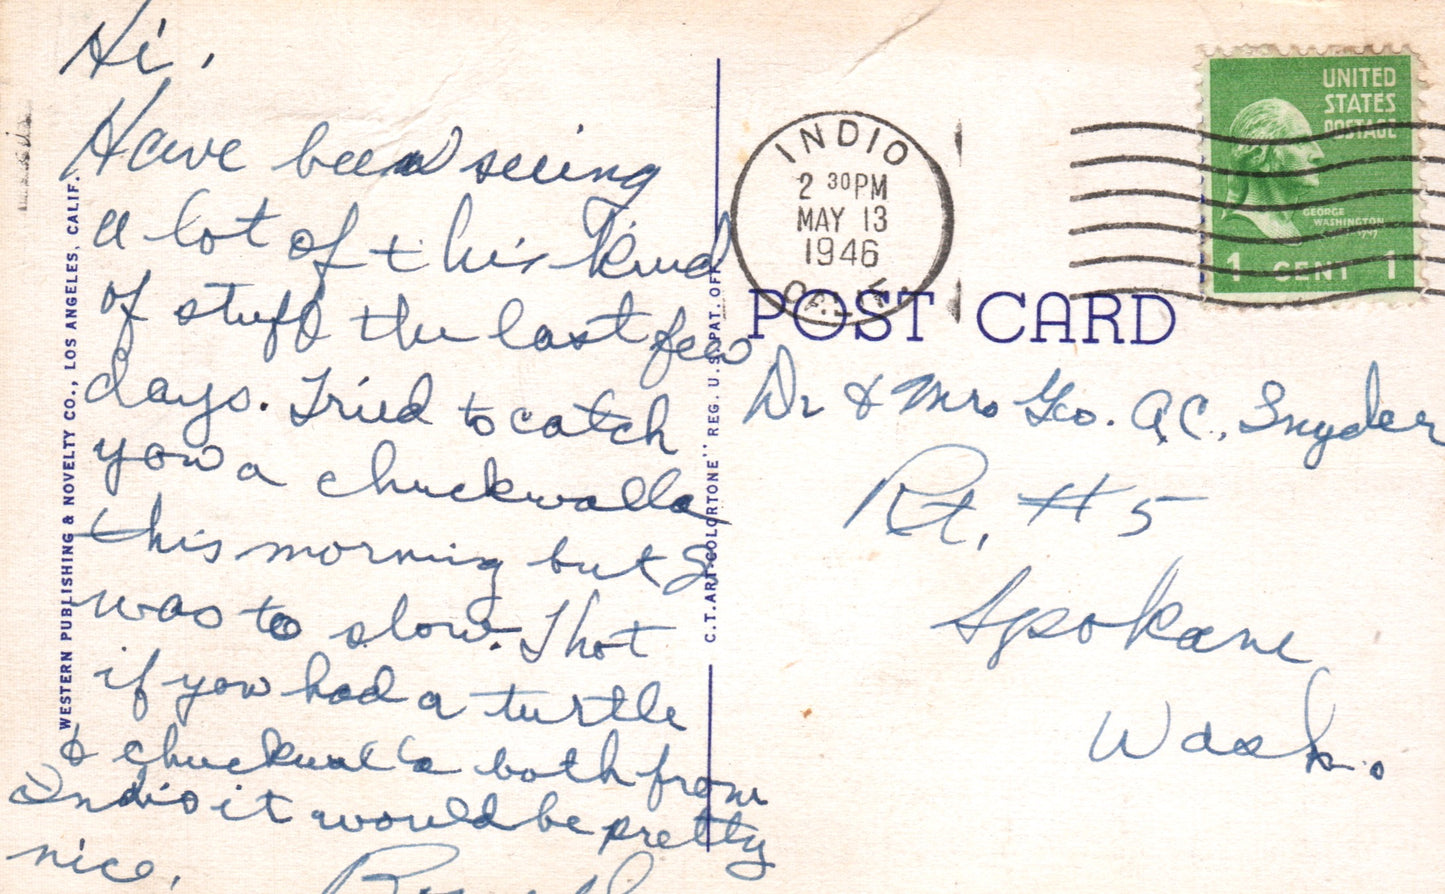 Hi,
Have been seeing
a lot of this kind
of stuff the last few
days. Tried to catch
you a chuckwalla
this morning but I
was to slow. Thot
if you had a turtle
& chuckwalla both from
Indio it would be pretty
nice.
WESTERN PUBLISHING & NOVELTY CO., LOS ANGELES, CALIF.
C.T. ART-COLORTONE" REG. U.S. PAT. OFF.
INDIO
2 30PM
MAY 13
1946
CALIF.
UNITED
STATES
POSTAGE
GEORGE
WASHINGTON
1 CENT 1
POST CARD
Dr & Mrs Geo. A.C. Snyder
Rt. #5
Spokane
Wash.